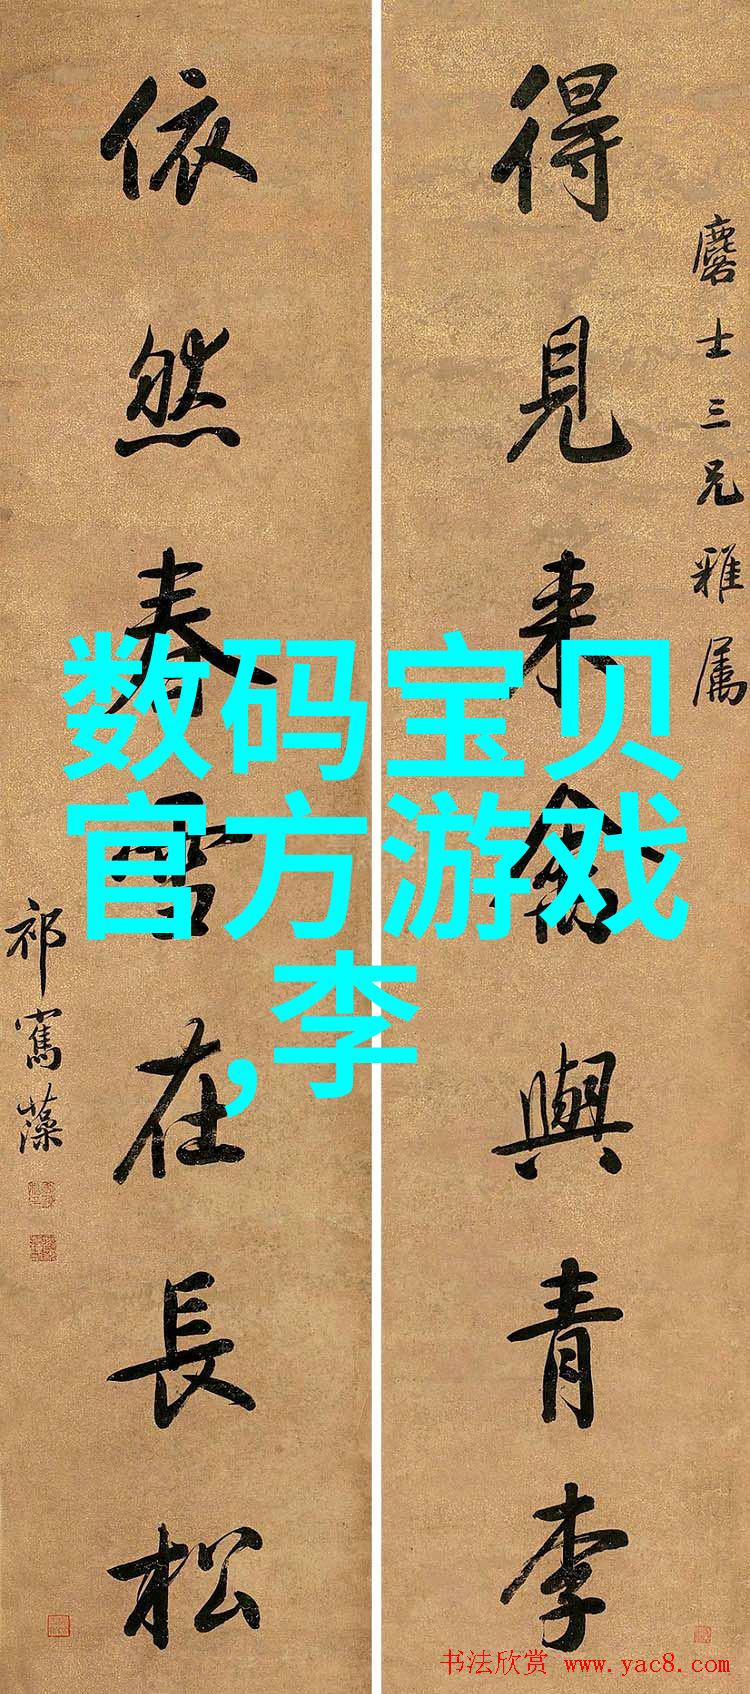 麐士三兄雅属
得見来禽與青李
依然春雪在長松
祁寯藻
数码宝贝
官方游戏
,李
书法欣赏 www.yac8.com